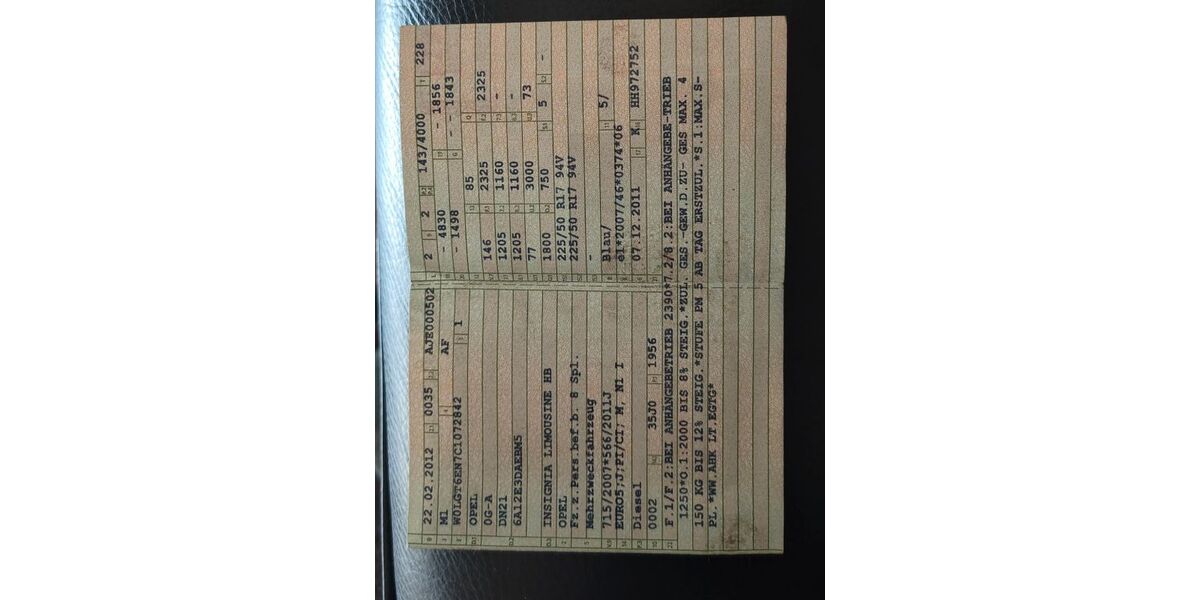 22.02.2012 0035 AJE000502
M1 AF
W0LGT6EN7C1072842 1
OPEL
0G-A
DN21
6A12E3DAEBM5
INSIGNIA LIMOUSINE HB
OPEL
Fz.z.Pers.bef.b. 8 Spl.
Mehrzweckfahrzeug
715/2007*566/2011J
EURO5;J;PI/CI; M, N1 I
Diesel
0002 35J0 1956
2 2 143/4000 228
- 4830 - 1856
- 1498 - - 1843
85
146 2325 2325
1205 1160 -
1205 1160 -
77 3000 73
1800 750 5 -
225/50 R17 94V
225/50 R17 94V
-
Blau/ 5/
e1*2007/46*0374*06
07.12.2011 K HH972752
F.1/F.2:BEI ANHÄNGEBETRIEB 2390*7.2/8.2:BEI ANHÄNGEBE-TRIEB
1250*O.1:2000 BIS 8% STEIG.*ZUL. GES -GEW.D.ZU- GES MAX. 4
150 KG BIS 12% STEIG.*STUFE PM 5 AB TAG ERSTZUL.*S.1:MAX.S-
PL. *WW.AHK LT.EGTG*